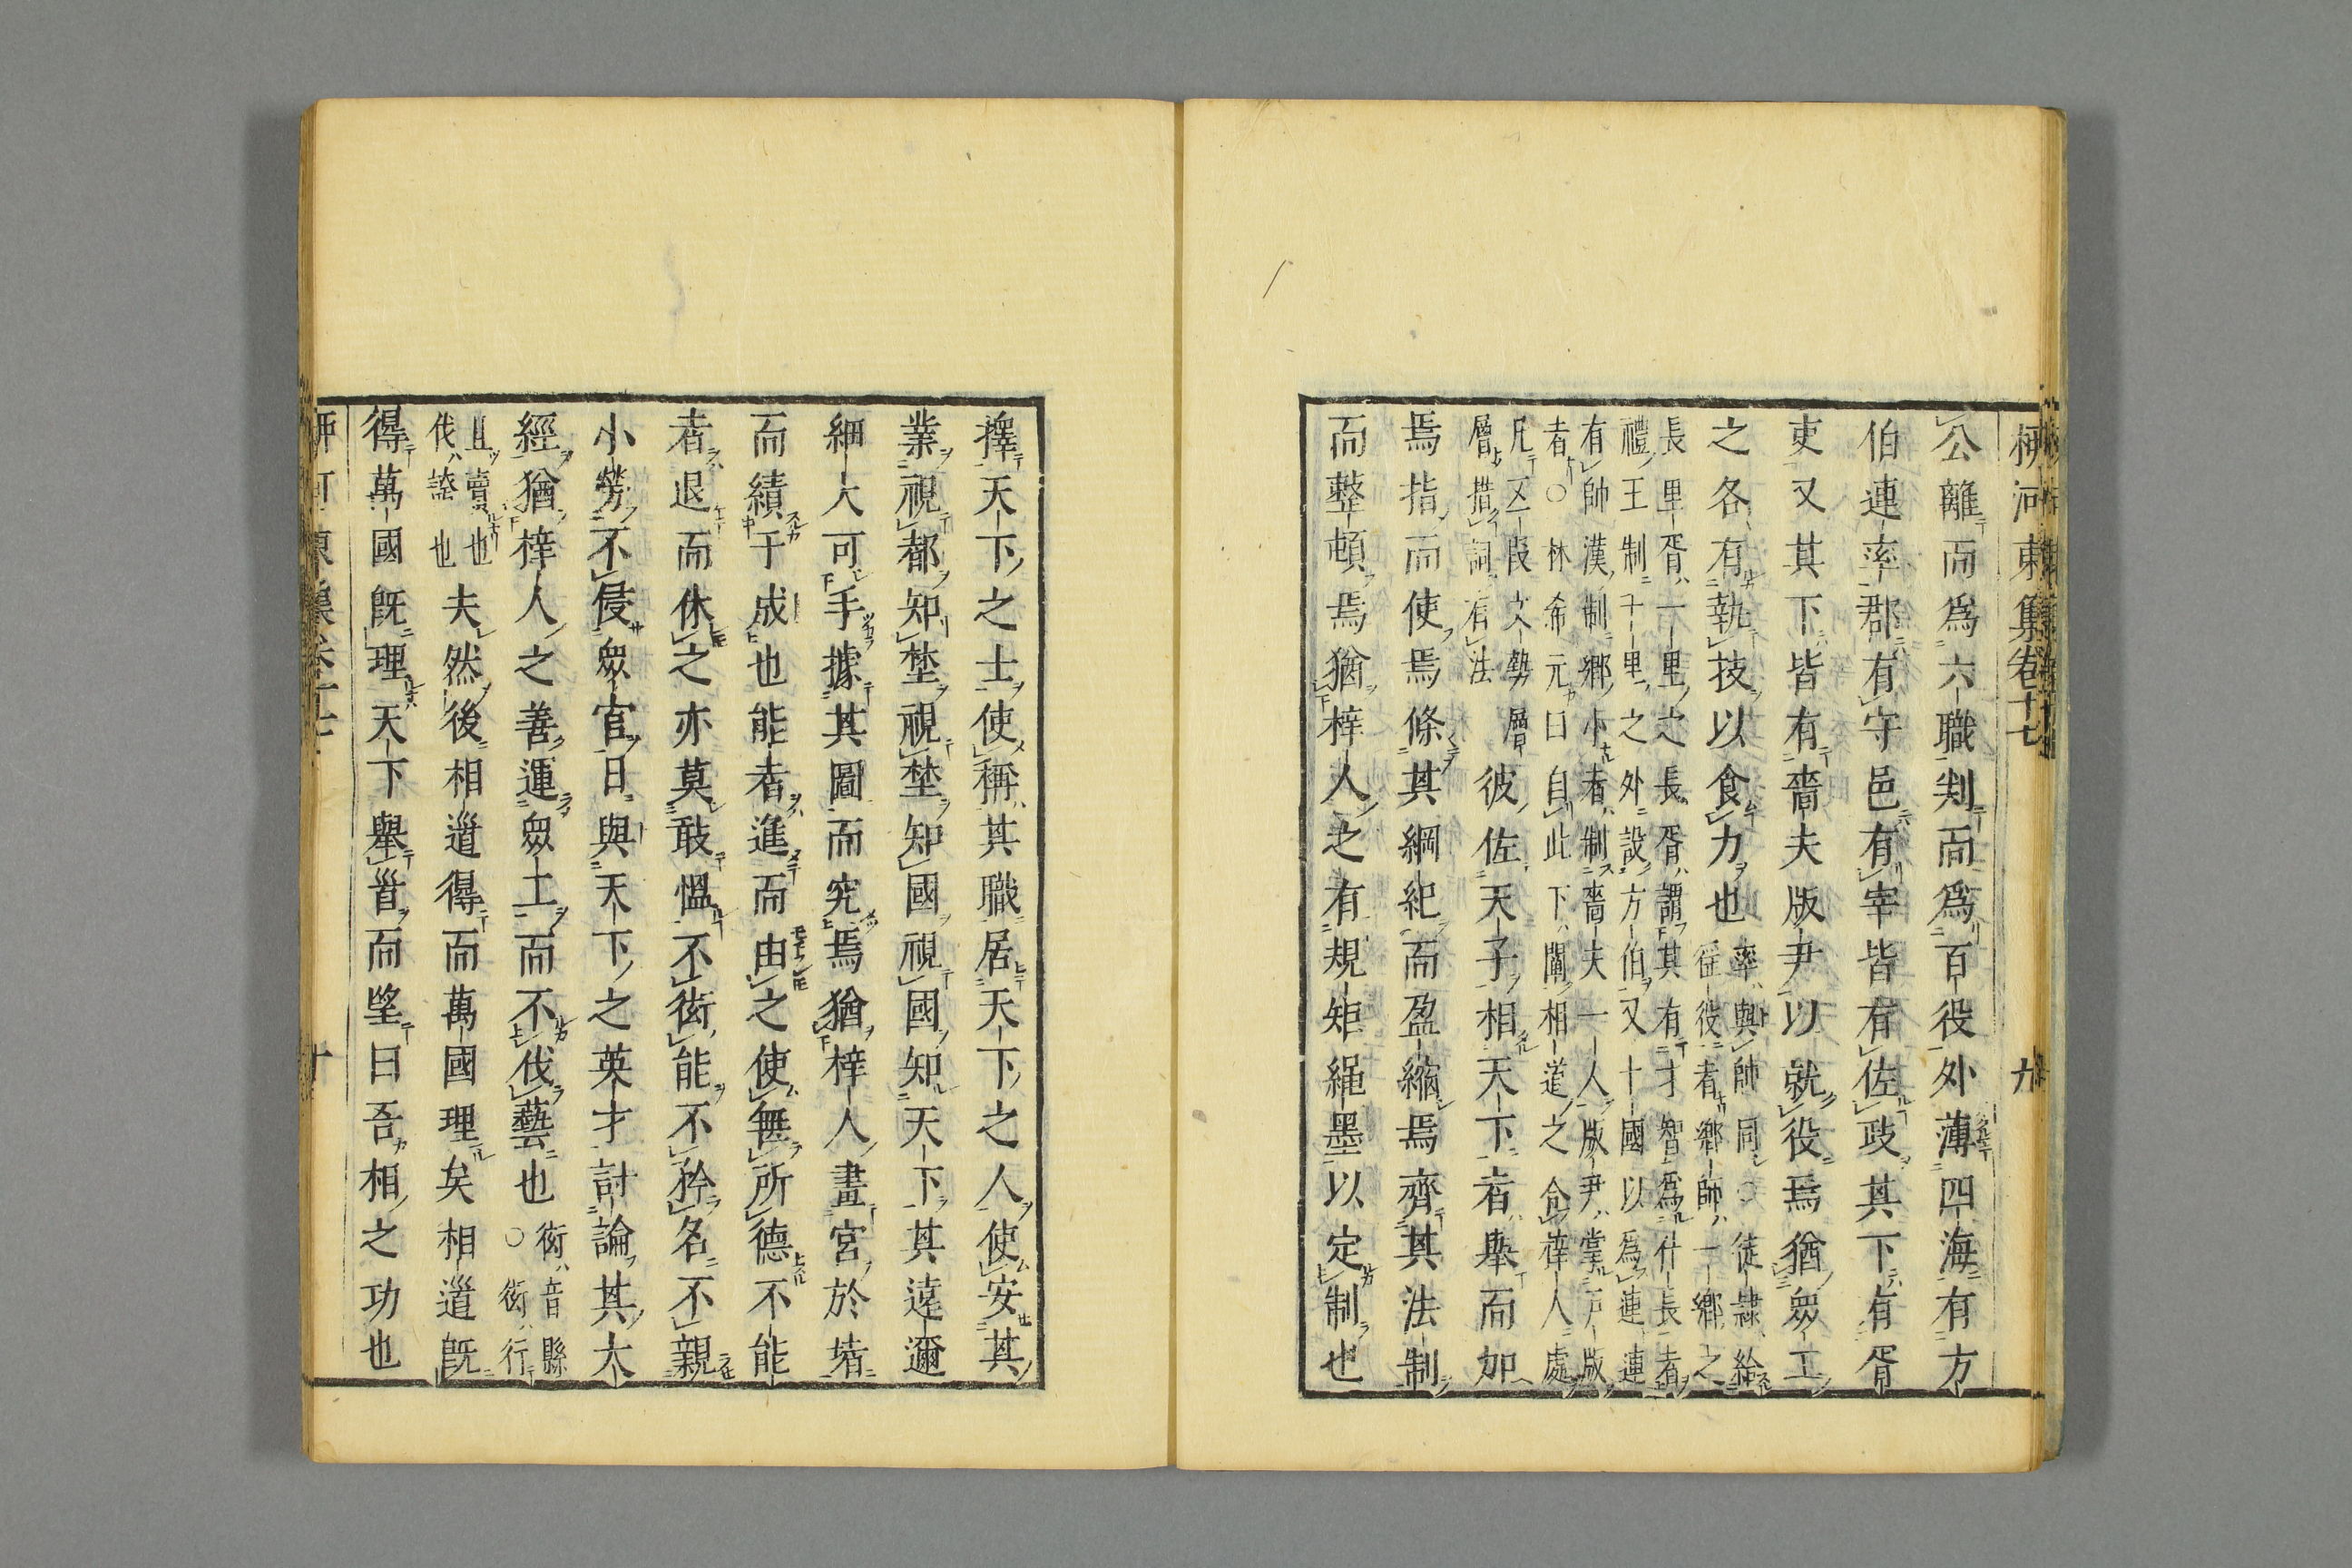 柳河東集卷十七 九
公離而爲六職判而爲百役外薄四海有方
伯連率郡有守邑有宰皆有佐政其下有胥
吏又其下皆有嗇夫版尹以就役焉猶衆工
之各有執技以食力也
率與帥同○徒隷給
徭役者鄕師一鄕之
長里胥一里之長胥謂其有才智爲什長者
禮王制千里之外設方伯又十國以爲連連
有帥漢制鄕小者制嗇夫一人版尹掌戸版
者○林希元曰自此下闡相道之合梓人處
凡五段文勢層
層措詞有法
彼佐天子相天下者擧而加
焉指而使焉條其綱紀而盈縮焉齊其法制
而整頓焉猶梓人之有規矩繩墨以定制也
擇天下之士使稱其職居天下之人使安其
業視都知埜視埜知國視國知天下其遠邇
細大可手據其圖而究焉猶梓人畫宮於堵
而績于成也能者進而由之使無所德不能
者退而休之亦莫敢慍不衒能不矜名不親
小勞不侵衆官日與天下之英才討論其大
經猶梓人之善運衆工而不伐藝也
衒音縣
○衒行
且賣也
伐誇也
夫然後相道得而萬國理矣相道旣
得萬國旣理天下擧首而望曰吾相之功也
柳河東集卷十七 十